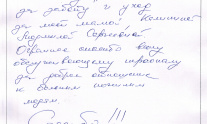 за заботу и уход
за моей мамой, Калининой
Людмилой Сергеевной
Огромное спасибо всему
обслуживающему персоналу
за доброе отношение
к больным пожилым
людям.
Спасибо!!!